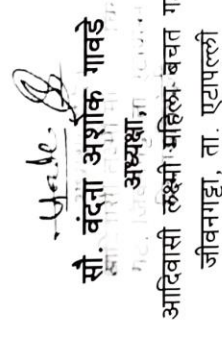 सौ. वंदना अशोक गावडे
अध्यक्षा,
आदिवासी लक्ष्मी महिला बचत ग
जीवनगट्टा, ता. एटापल्ली